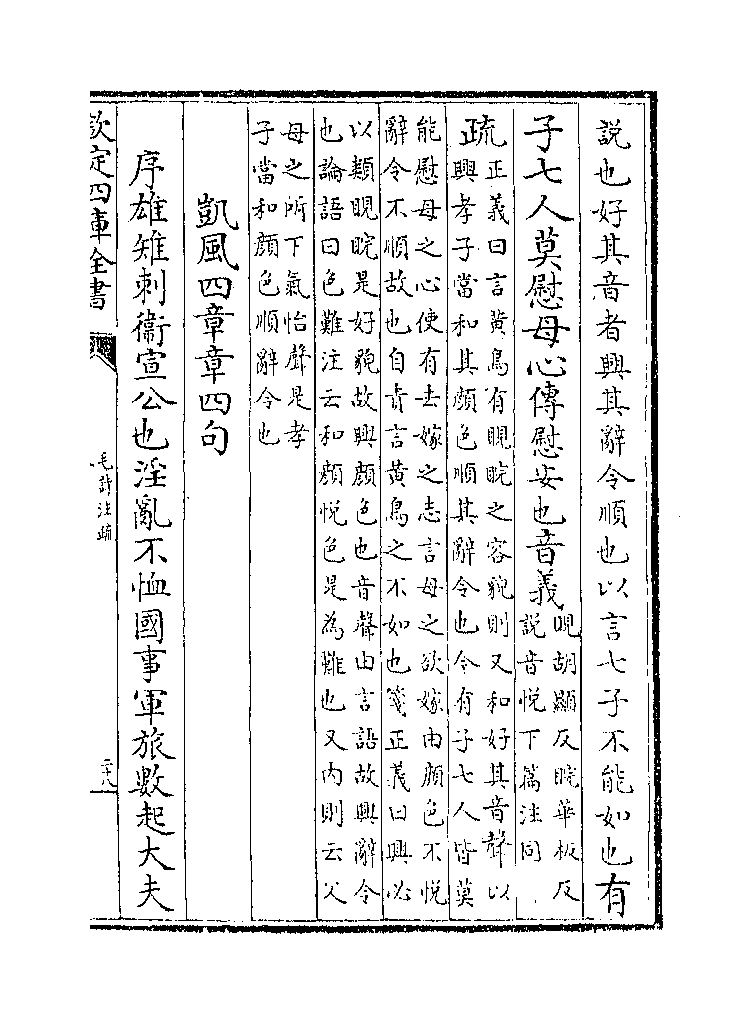 說也好其音者興其辭令順也以言七子不能如也有
子七人莫慰母心傳慰安也音義
睍胡顯反睆華板反
說音悅下篇注同
疏
正義曰言黃鳥有睍睆之容貌則又和好其音聲以
興孝子當和其顔色順其辭令也今有子七人皆莫
能慰母之心使有去嫁之志言母之欲嫁由顔色不悅
辭令不順故也自責言黃鳥之不如也箋正義曰興必
以類睍睆是好貌故興顔色也音聲由言語故興辭令
也論語曰色難注云和顔悅色是為難也又内則云父
母之所下氣怡聲是孝
子當和顔色順辭令也
凱風四章章四句
序雄雉刺衞宣公也淫亂不恤國事軍旅數起大夫
欽定四庫全書
毛詩注疏
二十八